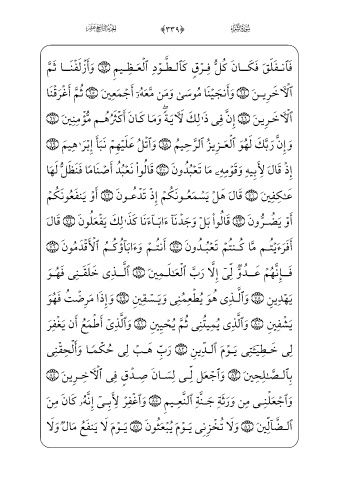 سُورَةُ الشُّعَرَاءِ ﴿٣٣٩﴾ الجُزْءُ التَّاسِعَ عَشَرَ
فَٱنفَلَقَ فَكَانَ كُلُّ فِرْقٍ كَٱلطَّوْدِ ٱلْعَظِيمِ ۝٦٣ وَأَزْلَفْنَا ثَمَّ
ٱلْأَخَرِينَ ۝٦٤ وَأَنجَيْنَا مُوسَىٰ وَمَن مَّعَهُۥٓ أَجْمَعِينَ ۝٦٥ ثُمَّ أَغْرَقْنَا
ٱلْأَخَرِينَ ۝٦٦ إِنَّ فِى ذَٰلِكَ لَأٓيَةً ۖ وَمَا كَانَ أَكْثَرُهُم مُّؤْمِنِينَ ۝٦٧
وَإِنَّ رَبَّكَ لَهُوَ ٱلْعَزِيزُ ٱلرَّحِيمُ ۝٦٨ وَٱتْلُ عَلَيْهِمْ نَبَأَ إِبْرَٰهِيمَ ۝٦٩
إِذْ قَالَ لِأَبِيهِ وَقَوْمِهِۦ مَا تَعْبُدُونَ ۝٧٠ قَالُوا۟ نَعْبُدُ أَصْنَامًا فَنَظَلُّ لَهَا
عَٰكِفِينَ ۝٧١ قَالَ هَلْ يَسْمَعُونَكُمْ إِذْ تَدْعُونَ ۝٧٢ أَوْ يَنفَعُونَكُمْ
أَوْ يَضُرُّونَ ۝٧٣ قَالُوا۟ بَلْ وَجَدْنَآ ءَابَآءَنَا كَذَٰلِكَ يَفْعَلُونَ ۝٧٤ قَالَ
أَفَرَءَيْتُم مَّا كُنتُمْ تَعْبُدُونَ ۝٧٥ أَنتُمْ وَءَابَآؤُكُمُ ٱلْأَقْدَمُونَ ۝٧٦
فَإِنَّهُمْ عَدُوٌّ لِّىٓ إِلَّا رَبَّ ٱلْعَٰلَمِينَ ۝٧٧ ٱلَّذِى خَلَقَنِى فَهُوَ
يَهْدِينِ ۝٧٨ وَٱلَّذِى هُوَ يُطْعِمُنِى وَيَسْقِينِ ۝٧٩ وَإِذَا مَرِضْتُ فَهُوَ
يَشْفِينِ ۝٨٠ وَٱلَّذِى يُمِيتُنِى ثُمَّ يُحْيِينِ ۝٨١ وَٱلَّذِىٓ أَطْمَعُ أَن يَغْفِرَ
لِى خَطِيٓـَٔتِى يَوْمَ ٱلدِّينِ ۝٨٢ رَبِّ هَبْ لِى حُكْمًا وَأَلْحِقْنِى
بِٱلصَّٰلِحِينَ ۝٨٣ وَٱجْعَل لِّى لِسَانَ صِدْقٍ فِى ٱلْأَخِرِينَ ۝٨٤
وَٱجْعَلْنِى مِن وَرَثَةِ جَنَّةِ ٱلنَّعِيمِ ۝٨٥ وَٱغْفِرْ لِأَبِىٓ إِنَّهُۥ كَانَ مِنَ
ٱلضَّآلِّينَ ۝٨٦ وَلَا تُخْزِنِى يَوْمَ يُبْعَثُونَ ۝٨٧ يَوْمَ لَا يَنفَعُ مَالٌ وَلَا